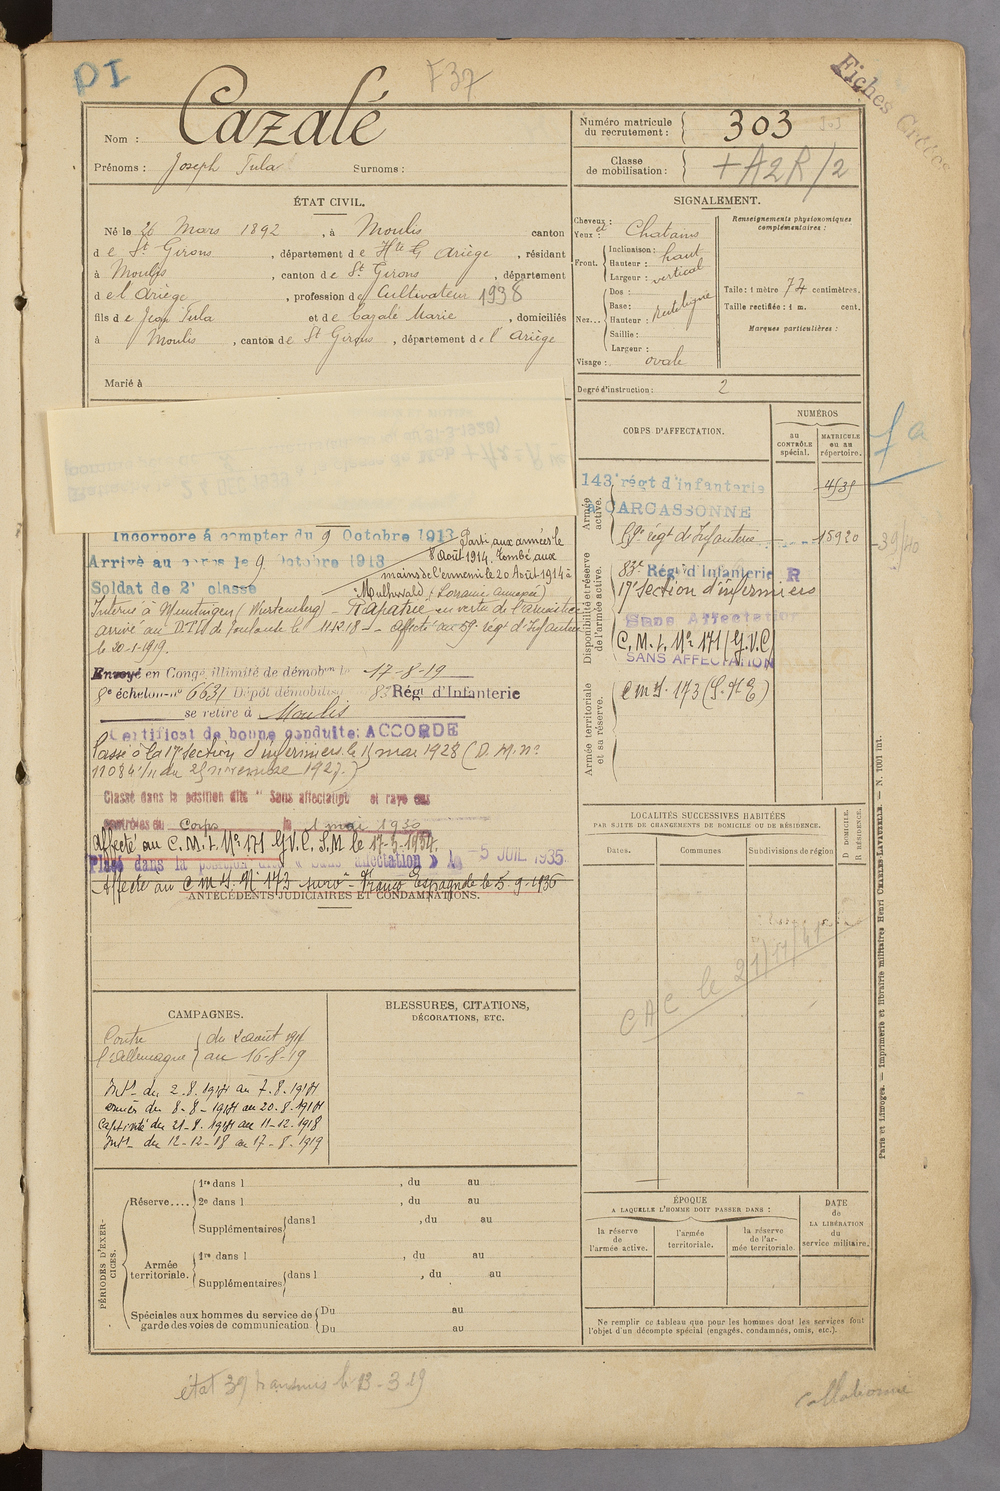 DI
F37
Fiches Créées
Nom : Cazalé
Prénoms : Joseph Tula Surnoms :
Numéro matricule du recrutement : 303
Classe de mobilisation : + A2R/2
ÉTAT CIVIL.
Né le 26 Mars 1892, à Moulis canton
d e St Girons, département d e Hte G Ariège, résidant
à Moulis, canton d e St Girons, département
d e l'Ariège, profession d e Cultivateur 1938
fils d e Jean Tula et d e Cazalé Marie, domiciliés
à Moulis, canton d e St Girons, département d e l'Ariège
Marié à
SIGNALEMENT.
Cheveux : et
Yeux : Chatains
Front. Inclinaison : haut
Hauteur :
Largeur : vertical
Nez... Dos :
Base :
Hauteur : Rectiligne
Saillie :
Largeur :
Visage : ovale
Renseignements physionomiques complémentaires :
Taille : 1 mètre 74 centimètres.
Taille rectifiée : 1 m. cent.
Marques particulières :
Degré d'instruction : 2
CORPS D'AFFECTATION.
NUMÉROS
au CONTRÔLE spécial.
MATRICULE ou au répertoire.
Armée active.
143e régt d'infanterie 4535
à CARCASSONNE
59e régt d'Infanterie 15920
39/40
Disponibilité et réserve de l'armée active.
83e Régt d'Infanterie R
17e Section d'infirmiers
Sans Affectation
C.M.I. No 171 (G.V.C)
SANS AFFECTATION
Armée territoriale et sa réserve.
C m I. 173 (S.N.E)
Incorporé à compter du 9 Octobre 1913
Arrivé au corps le 9 Octobre 1913
Soldat de 2e classe
Parti aux armées le
8 août 1914. Tombé aux
mains de l'ennemi le 20 Août 1914 à
Mulhwald (Lorraine annexée)
Interné à Munsingen (Wurtemberg) - Rapatrié en vertu de l'armistice
arrivé au D.T.I. de Toulouse le 11-12-18 - Affecté au 59e régt d'Infanterie
le 20-1-1919.
Envoyé en Congé illimité de démobon le 17-8-19
8e échelon no 6631 Dépôt démobilisateur 83e Régt d'Infanterie
se retire à Moulis
Certificat de bonne conduite: ACCORDE
Passé à la 17e section d'infirmiers le 1 mai 1928 (D.M. no
11084 1/11 du 25 novembre 1927.)
Classé dans la position dite "Sans affectation" et rayé des
contrôles du Corps le 1 mai 1930
Affecté au C.M.I. No 171 G.V.C. S.M le 17-5-1934.
Placé dans la position dite « Sans affectation » le 5 JUIL 1935
Affecté au C m I. No 173 Franco Espagnole le 5-9-1936
ANTÉCÉDENTS JUDICIAIRES ET CONDAMNATIONS.
LOCALITÉS SUCCESSIVES HABITÉES
PAR SUITE DE CHANGEMENTS DE DOMICILE OU DE RÉSIDENCE.
Dates. Communes Subdivisions de région D DOMICILE. R RÉSIDENCE.
CAC le 21/11/41
CAMPAGNES.
Contre l'Allemagne du 2 août 1914
au 16-8-19
Intr du 2.8.1914 au 7.8.1914
armées du 8-8-1914 au 20-8-1914
Captivité du 21-8-1914 au 11-12-1918
Intr du 12-12-18 au 17-8-1919
BLESSURES, CITATIONS,
DÉCORATIONS, ETC.
PÉRIODES D'EXERCICES.
Réserve.... 1re dans l , du au
2e dans l , du au
Supplémentaires dans l , du au
Armée territoriale. 1re dans l , du au
Supplémentaires dans l , du au
Spéciales aux hommes du service de Du au
garde des voies de communication Du au
ÉPOQUE
A LAQUELLE L'HOMME DOIT PASSER DANS :
la réserve de l'armée active.
l'armée territoriale.
la réserve de l'armée territoriale.
DATE de LA LIBÉRATION du service militaire.
Ne remplir ce tableau que pour les hommes dont les services font
l'objet d'un décompte spécial (engagés, condamnés, omis, etc.).
Paris et Limoges. — Imprimerie et librairie militaires Henri CHARLES-LAVAUZELLE. — N. 1001 int.
état 39 transmis le 13-3-19
collationné